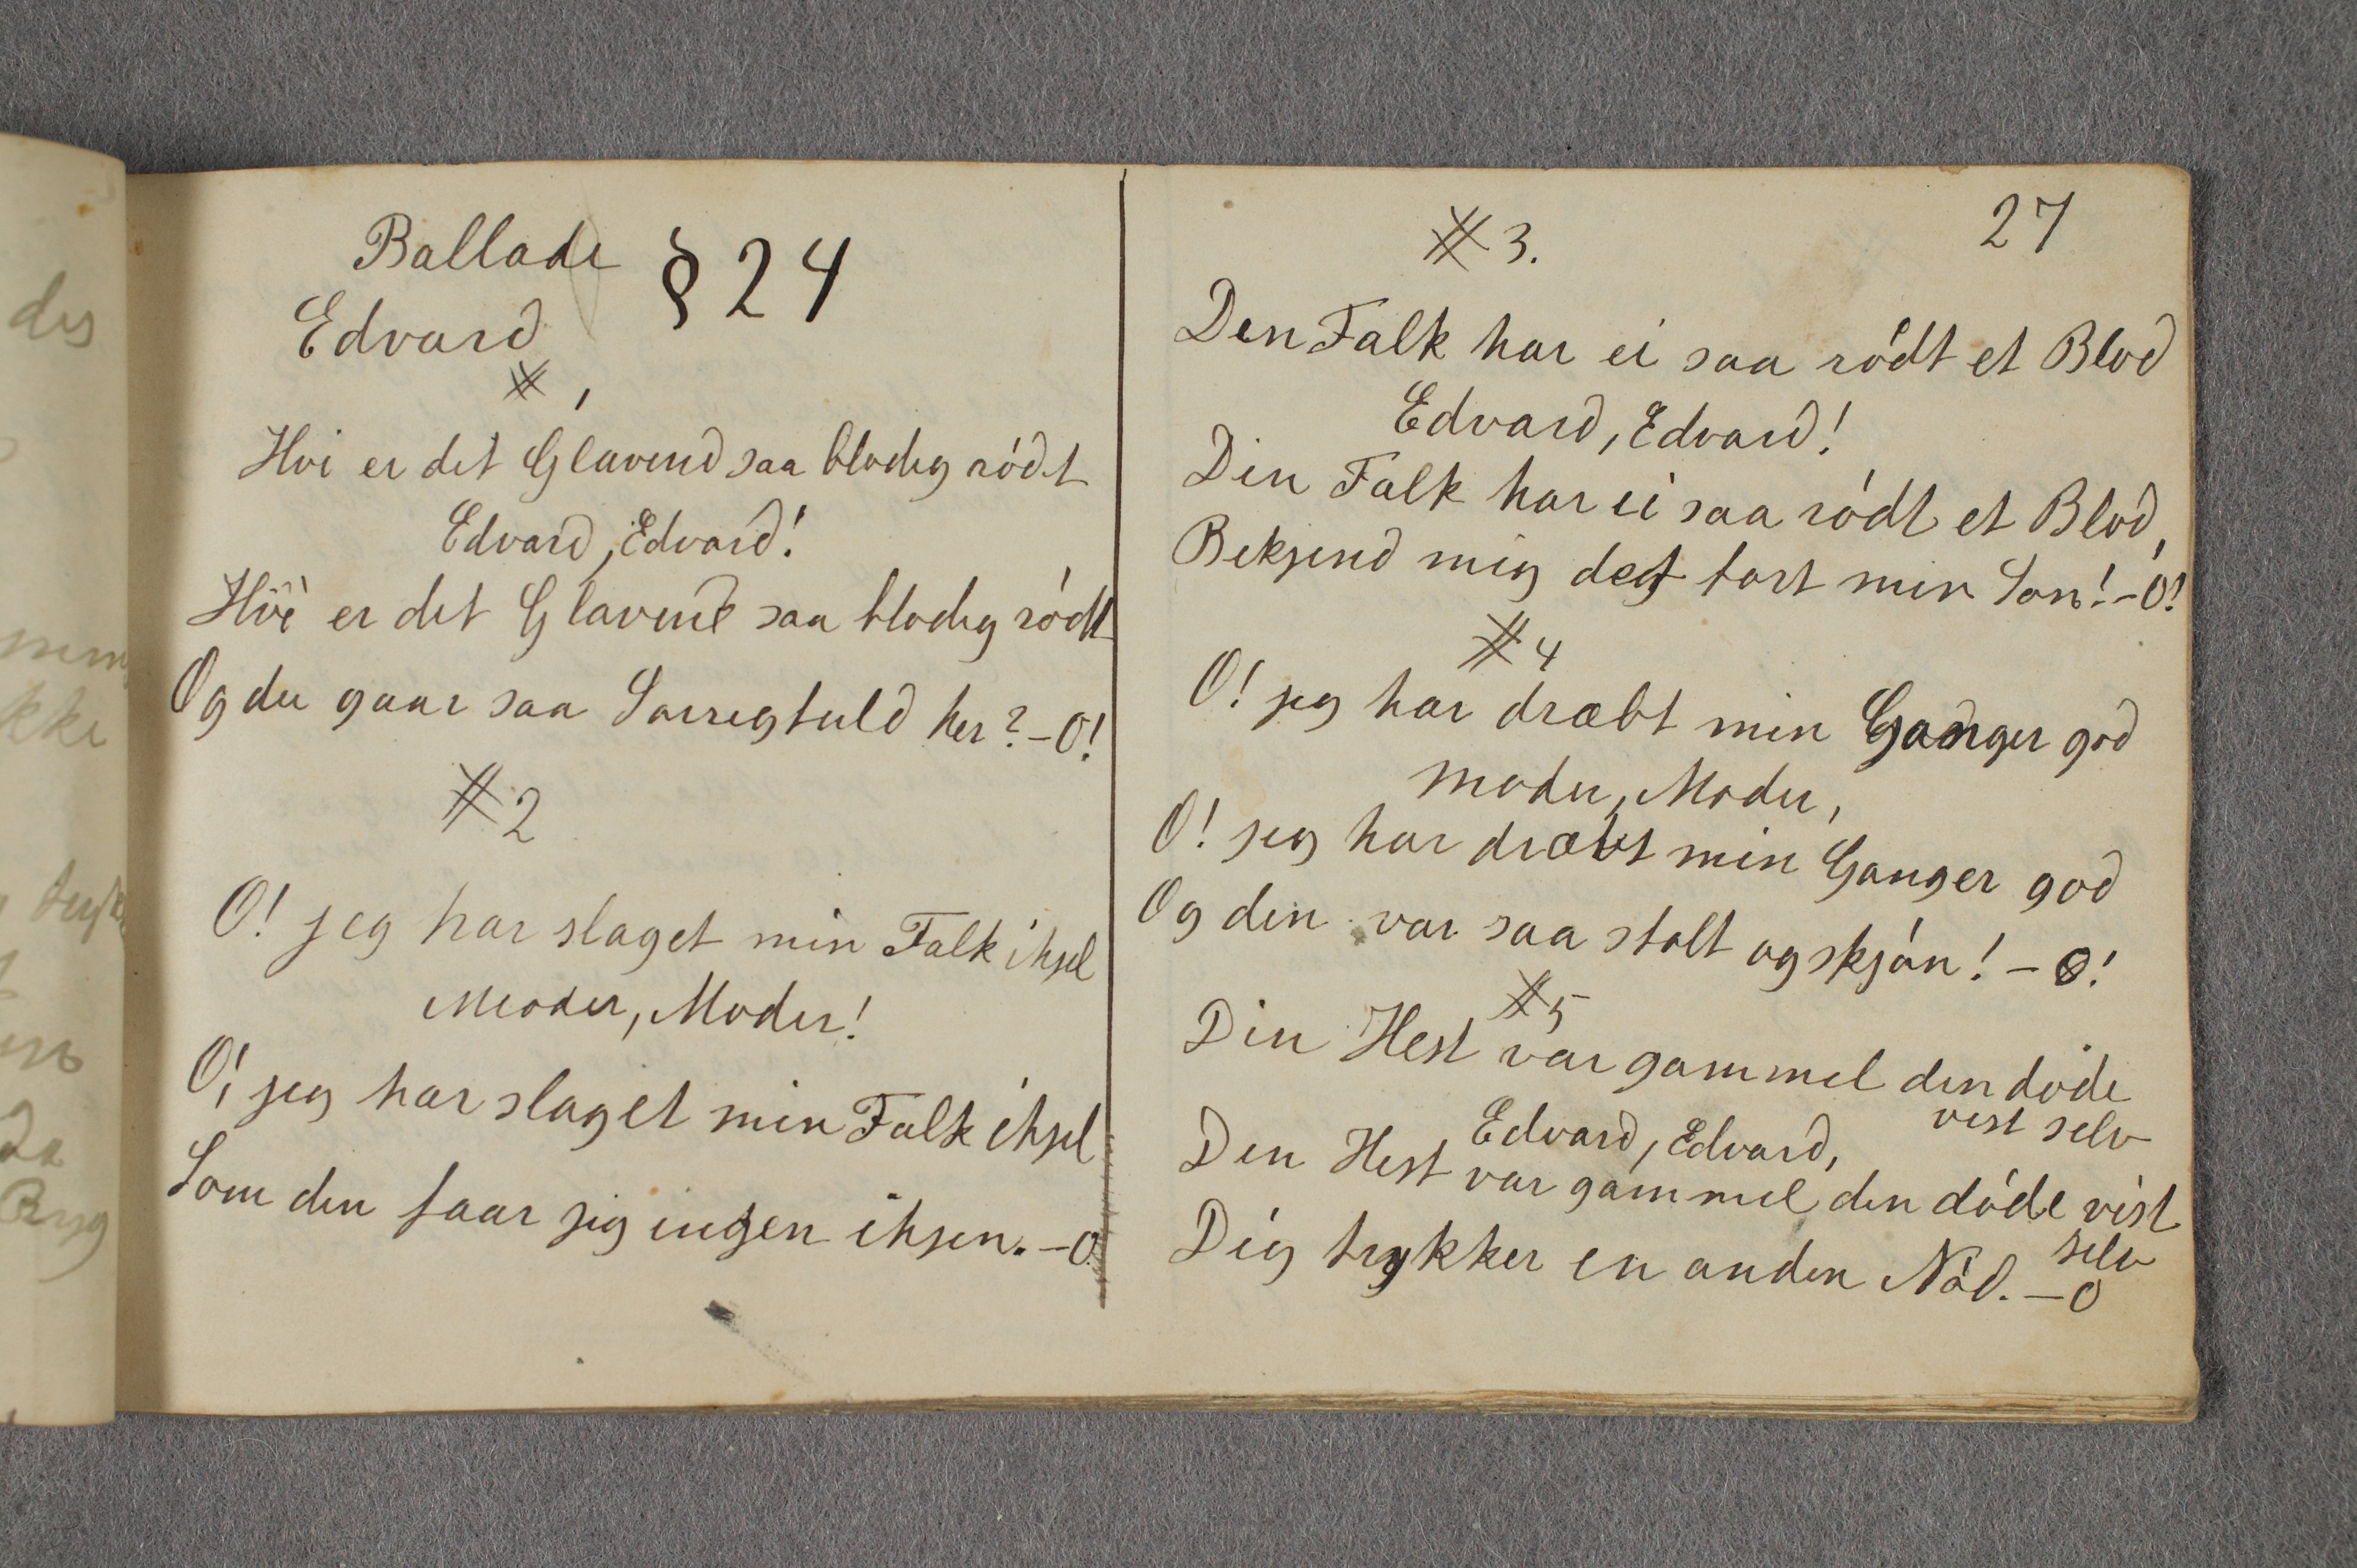 Ballade § 24
Edvard
# 1
Hvi er det Glavend saa blodig ródt
Edvard, Edvard!
Hvi er det Glavend saa blodig ródt
Og du gaar saa Sorregfuld her? - O!
# 2
O! jeg har slaget min Falk ihjel
Moder, Moder!
O! jeg har slaget min Falk ihjel
Som den faar jeg ingen ihjen. - O
27
# 3.
Den Falk har ei saa ródt et Blod
Edvard, Edvard!
Din Falk har ei saa ródt et Blod,
Bekjend mig det fort min Son! - O!
# 4
O! jeg har dræbt min Ganger god
Moder, Moder,
O! jeg har dræbt min Ganger god
Og den var saa stolt og skjón! - O!
# 5
Din Hest var gammel den dóde
vist selv
Edvard, Edvard,
Den Hest var gammel den dóde vist
selv
Dig trykker en anden Nód. - O